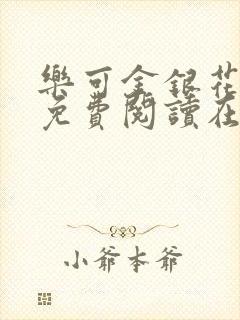 樂可金銀花
免費閱讀在
小爺本爺